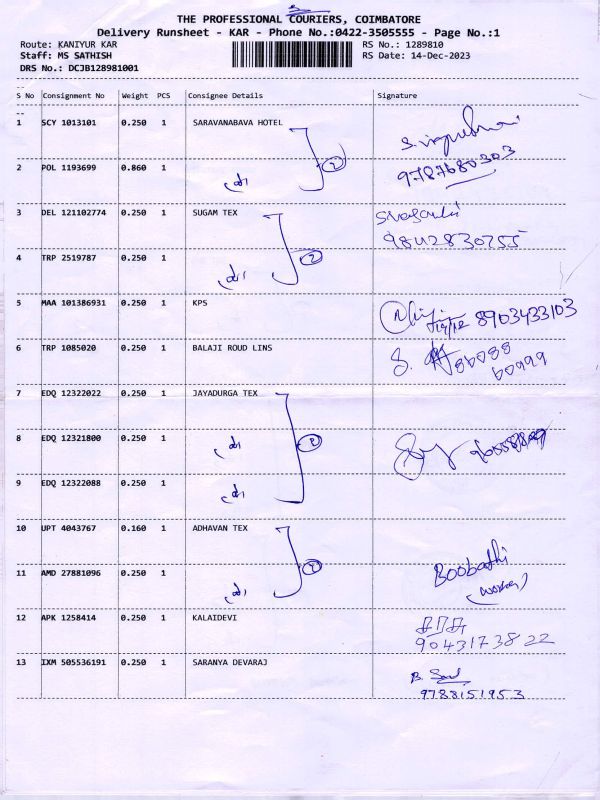 THE PROFESSIONAL COURIERS, COIMBATORE
Delivery Runsheet - KAR - Phone No.:0422-3505555 - Page No.:1
Route: KANIYUR KAR RS No.: 1289810
Staff: MS SATHISH RS Date: 14-Dec-2023
DRS No.: DCJB128981001
S No Consignment No Weight PCS Consignee Details Signature
1 SCY 1013101 0.250 1 SARAVANABAVA HOTEL
2 POL 1193699 0.860 1 9787680303
3 DEL 121102774 0.250 1 SUGAM TEX
9842830755
4 TRP 2519787 0.250 1
5 MAA 101386931 0.250 1 KPS 8903433103
6 TRP 1085020 0.250 1 BALAJI ROUD LINS
7 EDQ 12322022 0.250 1 JAYADURGA TEX
8 EDQ 12321800 0.250 1
9 EDQ 12322088 0.250 1
10 UPT 4043767 0.160 1 ADHAVAN TEX
11 AMD 27881096 0.250 1 Boobathi
(worker)
12 APK 1258414 0.250 1 KALAIDEVI
9043173822
13 IXM 505536191 0.250 1 SARANYA DEVARAJ
9788151953